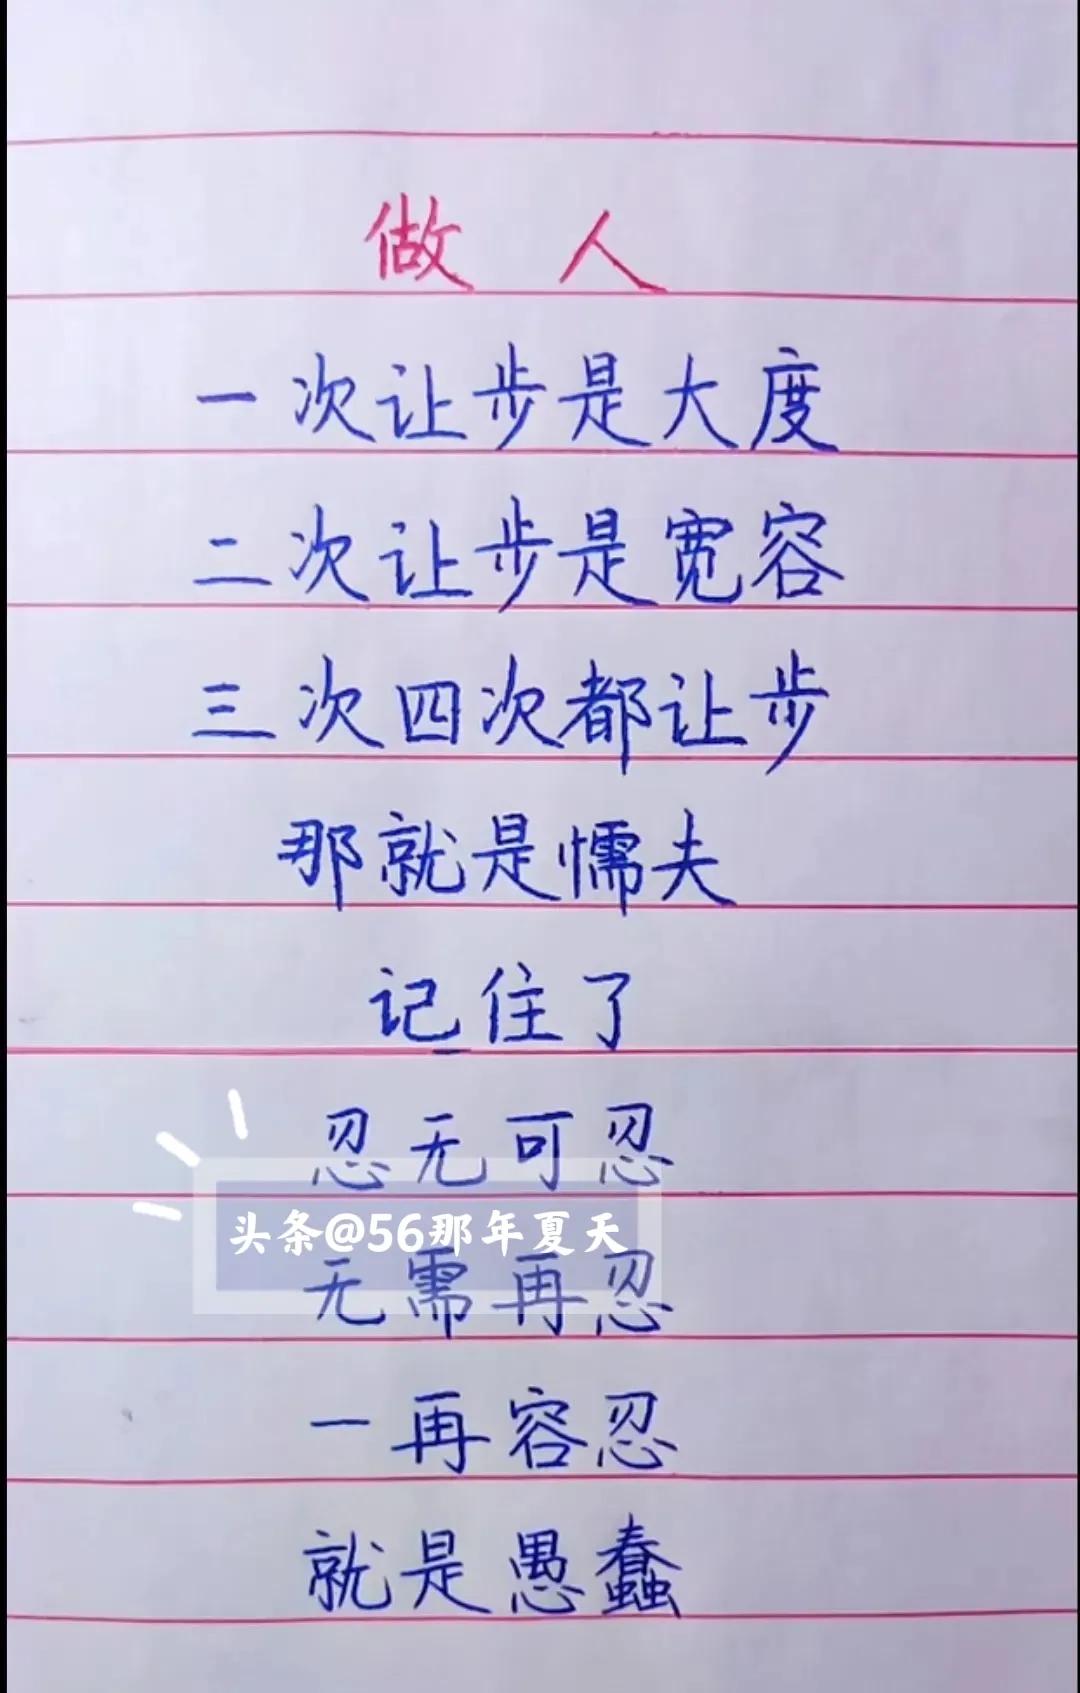 做人
一次让步是大度
二次让步是宽容
三次四次都让步
那就是懦夫
记住了
忍无可忍
头条@56那年夏天
无需再忍
一再容忍
就是愚蠢